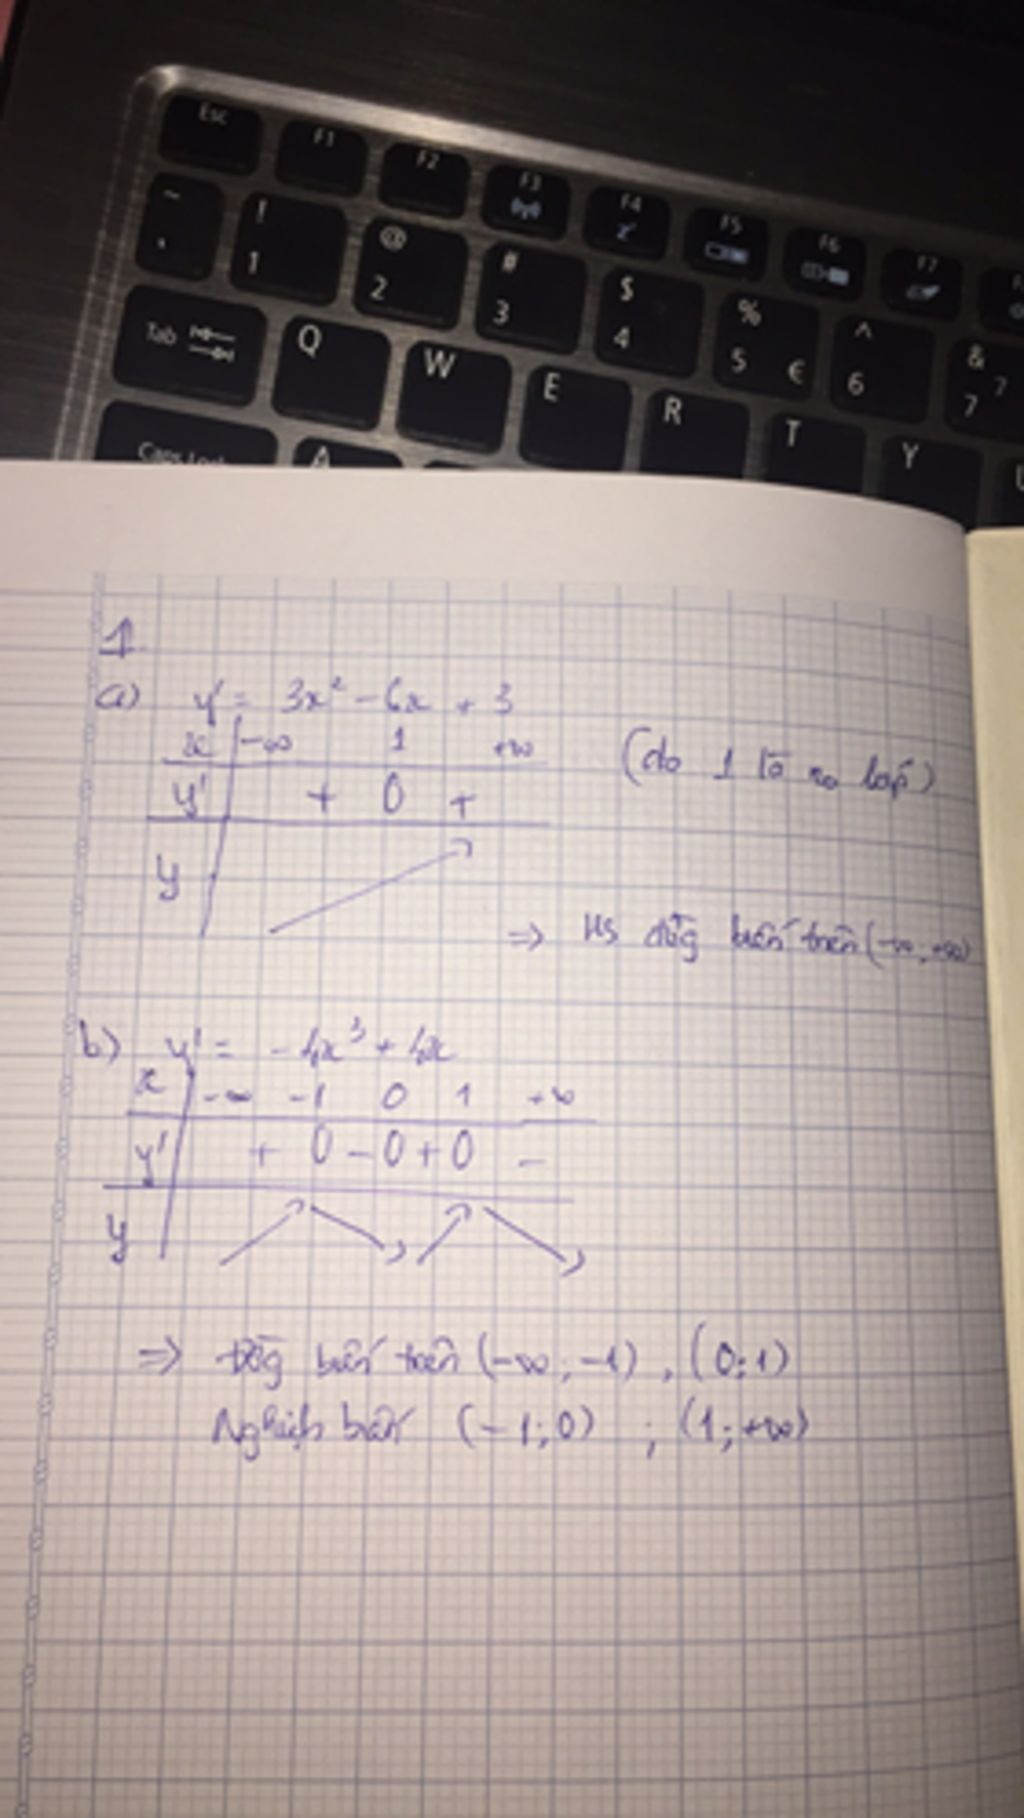 Esc F1 F2 F3 F4 F5 F6 F7
~ ! @ # $ % ^ &
1 2 3 4 5 € 6 7 7
Tab Q W E R T Y U
Caps Lock A
1
a) y' = 3x² - 6x + 3
x -∞ 1 +∞ (do 1 là no lặp)
y' + 0 +
y
=> HS đồg biến trên (-∞; +∞)
b) y' = -4x³ + 4x
x -∞ -1 0 1 +∞
y' + 0 - 0 + 0 -
y
=> Đồg biến trên (-∞; -1), (0; 1)
Nghịch biến (-1; 0) ; (1; +∞)